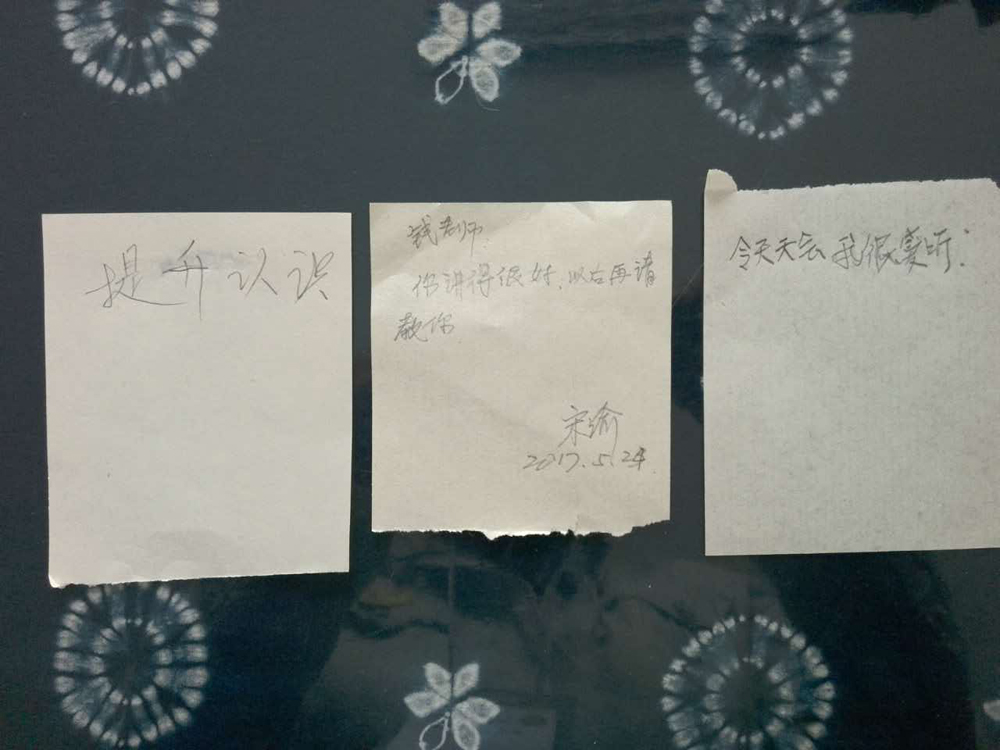 提升认识
钱老师
你讲得很好，以后再请
教你
宋瑜
2017.5.24
今天天会我很爱听！